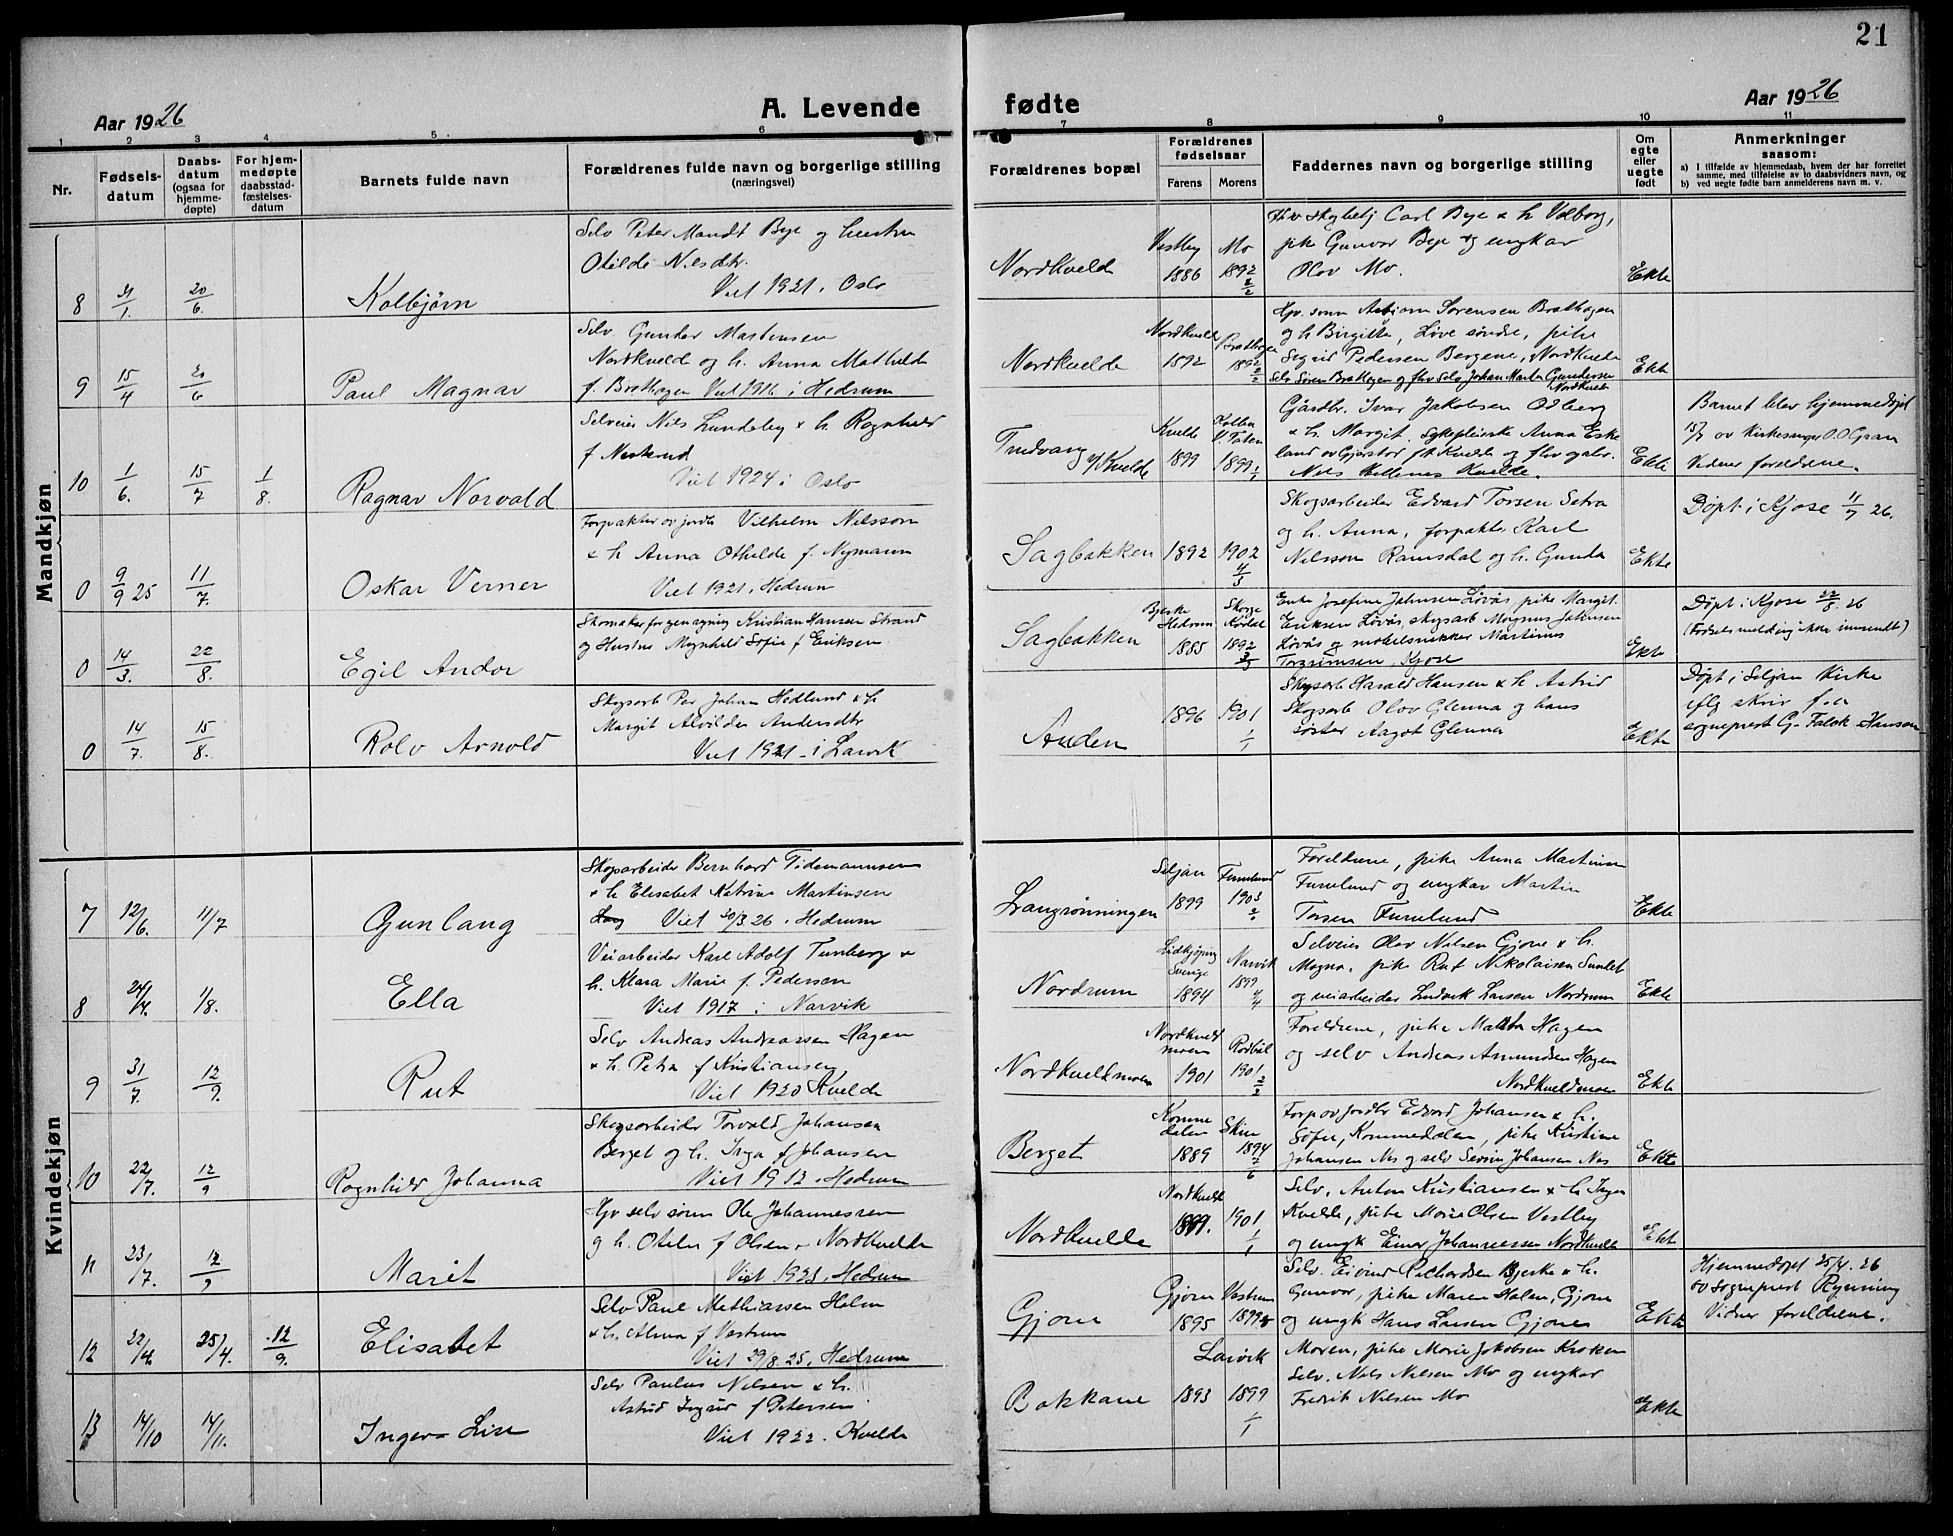 21
Aar 1926
A. Levende
fødte
Aar 1926
1 2 3 4 5 6 7 8 9 10 11
Nr.
Fødselsdatum
Daabsdatum (ogsaa for hjemmedøpte)
For hjemmedøpte daabsstadfæstelsesdatum
Barnets fulde navn
Forældrenes fulde navn og borgerlige stilling
(næringsvei)
Forældrenes bopæl
Forældrenes fødselsaar
Farens Morens
Faddernes navn og borgerlige stilling
Om egte eller uegte født
Anmerkninger
saasom:
a) I tilfælde av hjemmedaab, hvem der har forrettet samme, med tilføielse av to daabsvidners navn, og
b) ved uegte fødte barn anmelderens navn m. v.
Mandkjøn
8 31/1. 20/6. Kolbjørn
Selv Peter Mandt Bye og hustru
Otilde Nilsdtr.
Viet 1921. Oslo
Nordkvelde
Vestby 1886
Mo 1892 2/2
Carl Bye & h Valborg,
pike Gunvor Bye og ungkar
Olov Mo.
Ekte
9 15/4 20/6 Paul Magnar
Selv. Gunder Martensen
Nordkvelde og h. Anna Mathilde
f. Brathagen Viet 1916 i Hedrum
Nordkvelde
Nordkvelde 1892
Brathagen 1892 2/2
Gbr. sønn Asbjørn Sørensen Brathagen
og h Birgitte, Løve søndre, pike
Sigrid Pedersen Bergene, Nordkvelde
Selv Søren Brathagen og fhv selv. Johan Martin Gundersen
Nordkvelde
Ekte
10 1/6. 15/7 1/8. Ragnar Norvald
Selveier Nils Lundeby & h. Ragnhild
f Neskerud
Viet 1924 i Oslo
Trudvang p/Kvelde
Kvelde 1899
1899 1/1
Gårdbr. Ivar Jakobsen Odberg
& h. Margit. Sykepleierske Anna Eske
land
Kvelde.
Ekte
Barnet blev hjemmedøpt
15/7 av Kirkesanger O. O Gran
Vidner foreldrene.
0 9/9 25 11/7. Oskar Verner
Forpakter av jordb Vilhelm Nilsson
& h Anna Othilde f. Nymann
Viet 1921. Hedrum
Sagbakken
1892 1902 4/3
Skogsarbeider Edvard Torsen Setra
og h. Anna, forpakter Karl
Nilsson Ramsdal og h. Gunda
Ekte
Døpt i Kjose 11/7 26.
0 14/3. 22/8. Egil Andor
Skomaker for egen regning Kristian Hansen Strand
og Hustru Magnhild Sofie f Eriksen
Sagbakken
Bjerke Hedrum 1885
1892 3/3
Enke Josefine Johnsen Løvås pike Margit
Eriksen Løvås, skogsarb Magnus Johnsen
Løvås og møbelsnekker Martinus
Kjose
Ekte
Døpt i Kjose 22/8. 26
(Fødselsmelding ikke innsendt)
0 14/7. 15/8. Rolv Arnold
Skogsarb Per Johan Hedlund & h
Margit Alvilde Andersdtr
Viet 1921 i Larvik
Anden
1896 1901 1/1
Skogsarb Harald Hansen & h Astrid
Skogsarb Olav Glenna og hans
søster Aagot Glenna
Ekte
Døpt i Siljan Kirke
iflg skriv fra
sogneprest G. Falck-Hansen
Kvindekjøn
7 12/6. 11/7 Gunlaug
Skogsarbeider Bernhard Tidemannsen
& h Elisabet Katrine Martinsen
Viet 20/3 26. Hedrum
Langrønningen
Siljan 1899
Furulund 1903 2/0
Foreldrene, pike Anna Martinsen
Furulund og ungkar Martin
Torsen Furulund
Ekte
8 24/4. 1/8. Ella
Veiarbeider Karl Adolf Tunberg &
h. Klara Marie f. Pedersen
Viet 1917 i Narvik
Nordrum
Lidkjöping Sverige 1894
Narvik 1899 4/4
Selveier Olav Nilsen Gjone & h.
Magna, pike Rut Nikolaisen Sundet
og veiarbeider Ludvik Larsen Nordrum
Ekte
9 31/7. 12/9. Rut
Selv Andreas Andreassen Hagen
& h. Petra f Kristiansen
Viet 1920 Kvelde
Nordkveldmoen
Nordkveld moen 1901
Rødbøl 1901 2/2
Foreldrene, pike Hagen
og selv Andreas Amundsen Hagen
Nordkveldmoen
Ekte
10 22/7. 12/9 Ragnhild Johanna
Skogsarbeider Torvald Johansen
Berget og h. Inga f Johansen
Viet 1912. Hedrum
Berget
Komme dalen 1889
Skien 1894 7/6
Forp av jordbr Edvard Johansen & h.
Sofie, Kommedalen, pike Kristine
Johansen Nes og selv Severin Johansen Nes
Ekte
11 23/7. 12/9 Marit
Gbr selv sønn Ole Johannessen
og h. Otelie f Olsen, Nordkvelde
Viet 1921, Hedrum
Nordkvelde
Nordkvelde 1899.
1901 1/1
Selv. Anton Kristiansen & h Inga
Kvelde, pike Marie Olsen Vestby
og ungk Einar Johannessen Nordkvelde
Ekte
12 22/4. 25/4. 12/9. Elisabet
Selv Paul Mathiassen Holm
& h. Alma f Vestrum
Viet 29/8. 25. Hedrum
Gjone
Gjone 1895
Vestrum 1899
Selv. Eivind Richardsen Bjerke & h.
Gunvor, pike Maren Holm, Gjone
og ungk Hans Larsen Gjone
Ekte
Hjemmedøpt 25/4. 26
av sogneprest Rynning
Vidner foreldrene.
13 14/10 14/11. Ingera Lise
Selv Paulus Nilsen & h.
Astrid Ingrid f Petersen
Viet 1922. Kvelde
Bakkane
1893
Larvik 1899 1/1
Moren, pike Marie Jakobsen Kroken
Selv. Nils Nilsen Mo og ungkar
Fredrik Nilsen Mo
Ekte